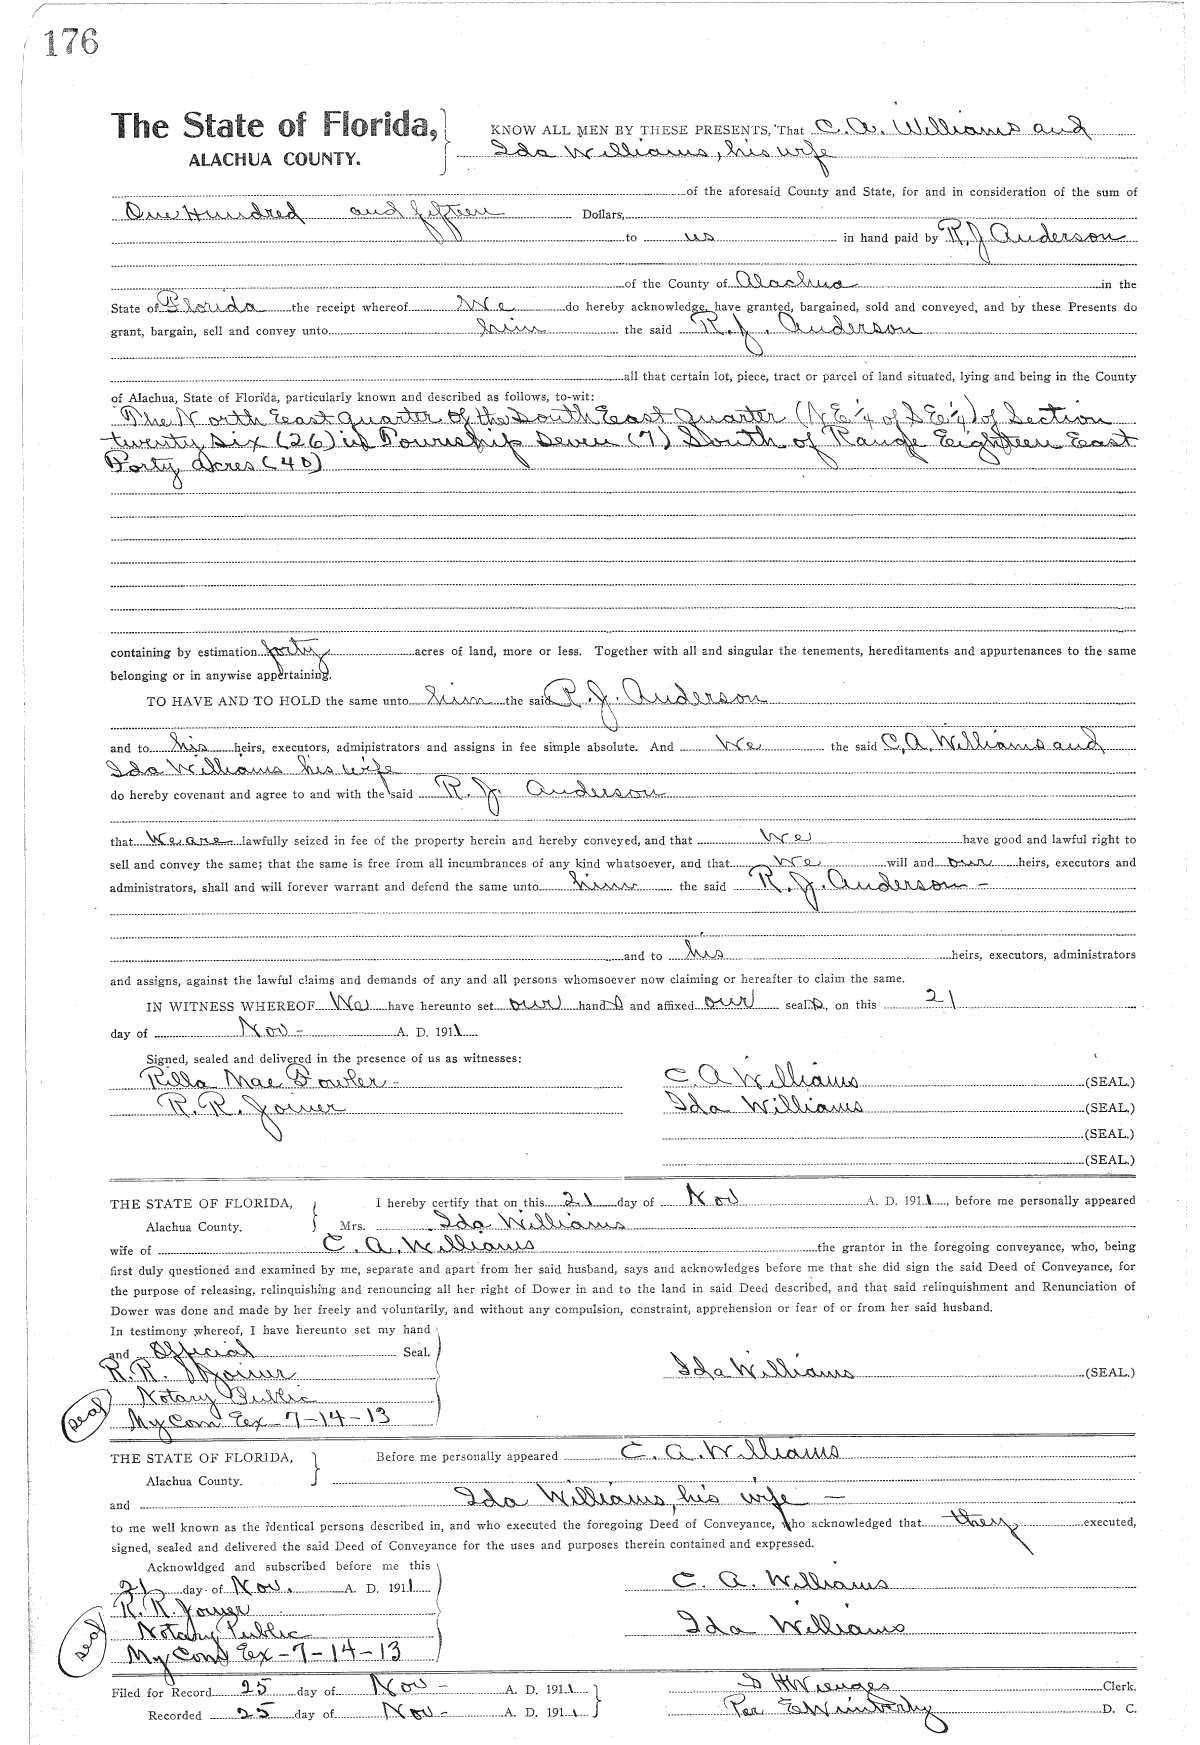 176
The State of Florida, KNOW ALL MEN BY THESE PRESENTS, That C. A. Williams and
ALACHUA COUNTY. Ida Williams, his wife
of the aforesaid County and State, for and in consideration of the sum of
One Hundred and fifteen Dollars,
to us in hand paid by R. J. Anderson
of the County of Alachua in the
State of Florida the receipt whereof We do hereby acknowledge, have granted, bargained, sold and conveyed, and by these Presents do
grant, bargain, sell and convey unto him the said R. J. Anderson
all that certain lot, piece, tract or parcel of land situated, lying and being in the County
of Alachua, State of Florida, particularly known and described as follows, to-wit:
The North East Quarter of the South East Quarter (N E 1/4 of S E 1/4) of Section
twenty six (26) in Township Seven (7) South of Range Eighteen East
Forty Acres (40)
containing by estimation forty acres of land, more or less. Together with all and singular the tenements, hereditaments and appurtenances to the same
belonging or in anywise appertaining.
TO HAVE AND TO HOLD the same unto him the said R. J. Anderson
and to his heirs, executors, administrators and assigns in fee simple absolute. And We the said C. A. Williams and
Ida Williams his wife
do hereby covenant and agree to and with the said R. J. Anderson
that We are lawfully seized in fee of the property herein and hereby conveyed, and that We have good and lawful right to
sell and convey the same; that the same is free from all incumbrances of any kind whatsoever, and that We will and our heirs, executors and
administrators, shall and will forever warrant and defend the same unto him the said R. J. Anderson -
and to his heirs, executors, administrators
and assigns, against the lawful claims and demands of any and all persons whomsoever now claiming or hereafter to claim the same.
IN WITNESS WHEREOF We have hereunto set our hands and affixed our seals, on this 21
day of Nov - A. D. 1911
Signed, sealed and delivered in the presence of us as witnesses:
Rilla Mae Fowler - C. A Williams (SEAL.)
R. R. Joiner Ida Williams (SEAL.)
(SEAL.)
(SEAL.)
THE STATE OF FLORIDA, I hereby certify that on this 21 day of Nov A. D. 1911, before me personally appeared
Alachua County. Mrs. Ida Williams
wife of C. A. Williams the grantor in the foregoing conveyance, who, being
first duly questioned and examined by me, separate and apart from her said husband, says and acknowledges before me that she did sign the said Deed of Conveyance, for
the purpose of releasing, relinquishing and renouncing all her right of Dower in and to the land in said Deed described, and that said relinquishment and Renunciation of
Dower was done and made by her freely and voluntarily, and without any compulsion, constraint, apprehension or fear of or from her said husband.
In testimony whereof, I have hereunto set my hand
and Official Seal.
R. R. Joiner Ida Williams (SEAL.)
Notary Public
seal My Com Ex - 7-14-13
THE STATE OF FLORIDA, Before me personally appeared C. A. Williams
Alachua County.
and Ida Williams, his wife -
to me well known as the identical persons described in, and who executed the foregoing Deed of Conveyance, who acknowledged that they executed,
signed, sealed and delivered the said Deed of Conveyance for the uses and purposes therein contained and expressed.
Acknowldged and subscribed before me this
21 day of Nov. A. D. 1911 C. A. Williams
R. R. Joiner
Notary Public Ida Williams
seal My Com Ex - 7-14-13
Filed for Record 25 day of Nov - A. D. 1911 S H Wienges Clerk.
Recorded 25 day of Nov - A. D. 1911 Per E Wimberly D. C.